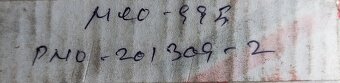 MRO-995
PMO-201309-2